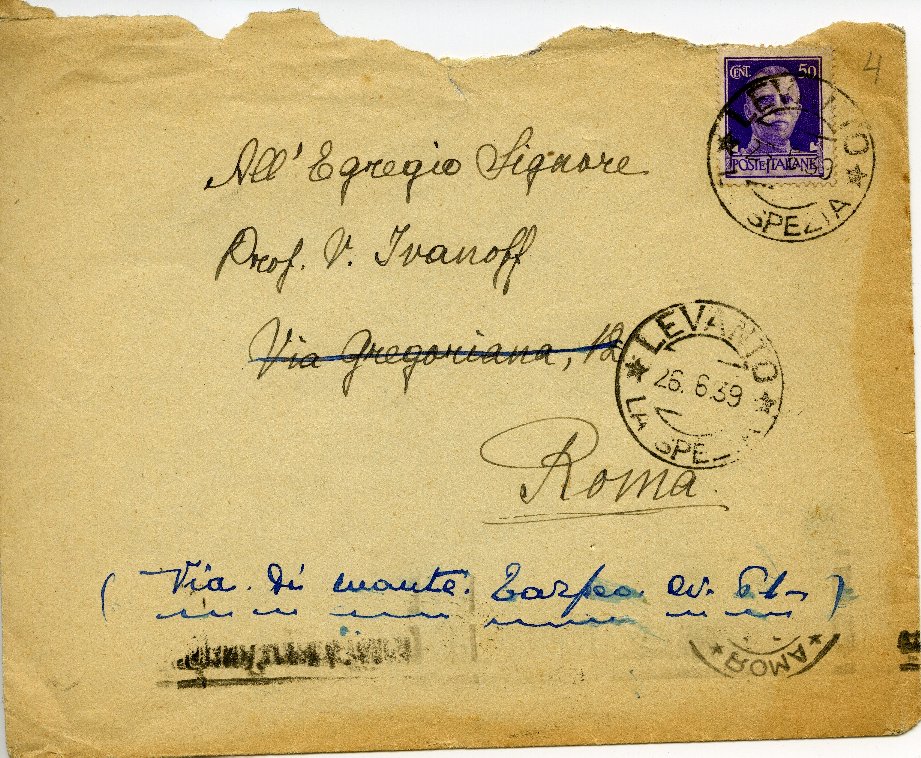 4
CENT. 50
POSTE ITALIANE
LEVANTO
SPEZIA
All' Egregio Signore
Prof. V. Ivanoff
Via Gregoriana, 12
LEVANTO
26.6.39
LA SPE
Roma
(Via di monte Tarpeo
ROMA